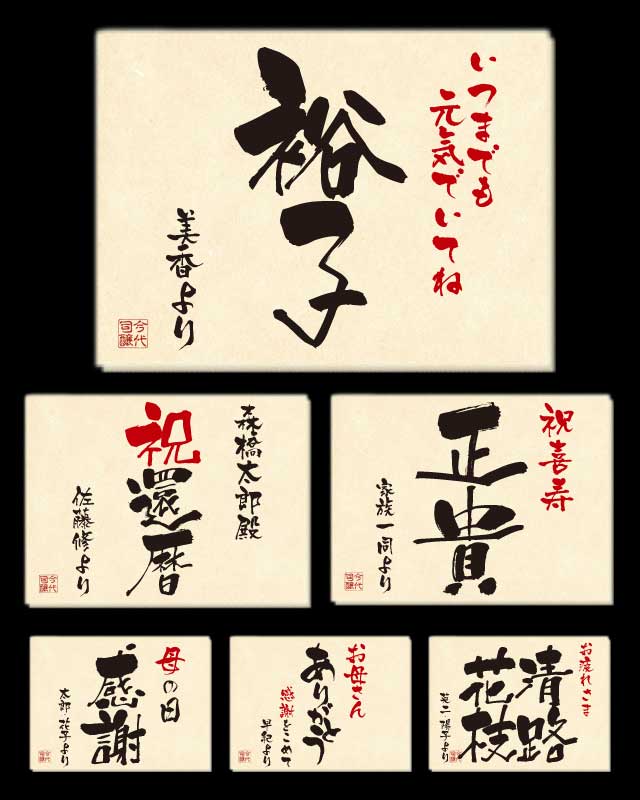 いつまでも
元気でいてね
裕子
美香より
今代
司醸
森橋太郎殿
祝
還暦
佐藤修より
今代
司醸
祝喜寿
正貴
家族一同より
今代
司醸
母の日
感謝
太郎・花子より
今代
司醸
お母さん
ありがとう
感謝をこめて
早紀より
今代
司醸
お疲れさま
清路
花枝
今代
司醸